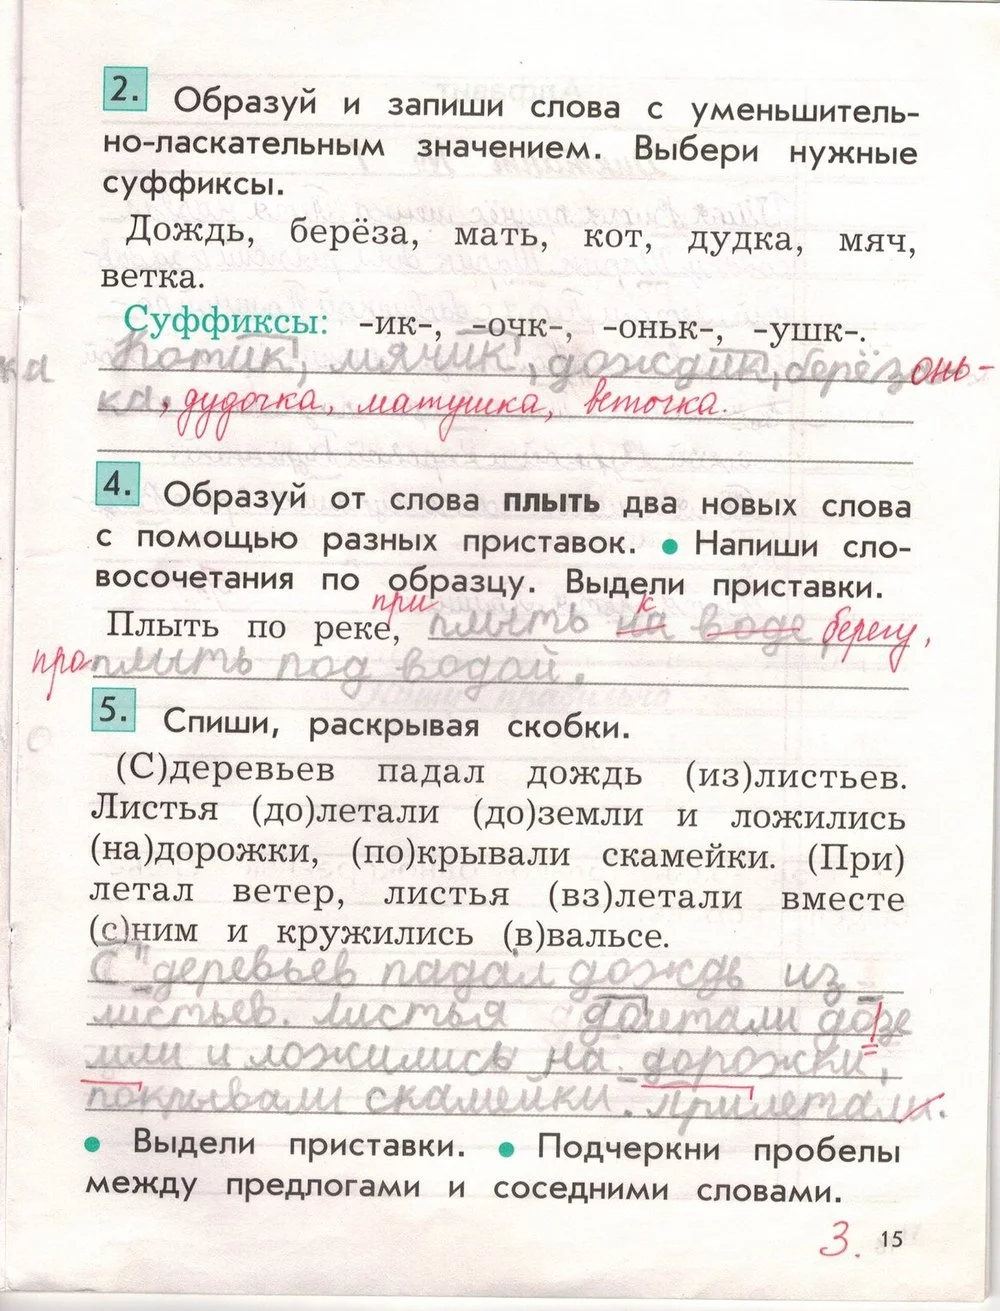 2. Образуй и запиши слова с уменьшитель-
но-ласкательным значением. Выбери нужные
суффиксы.
Дождь, берёза, мать, кот, дудка, мяч,
ветка.
Суффиксы: -ик-, -очк-, -оньк-, -ушк-.
ка Котик, мячик, дождик, берёзонь-
ка, дудочка, матушка, веточка.
4. Образуй от слова плыть два новых слова
с помощью разных приставок. • Напиши сло-
восочетания по образцу. Выдели приставки.
при к
Плыть по реке, плыть на воде берегу,
проплыть под водой.
5. Спиши, раскрывая скобки.
(С)деревьев падал дождь (из)листьев.
Листья (до)летали (до)земли и ложились
(на)дорожки, (по)крывали скамейки. (При)
летал ветер, листья (вз)летали вместе
(с)ним и кружились (в)вальсе.
С деревьев падал дождь из
листьев. Листья долетали дозе
мли и ложились на дорожки,
покрывали скамейки. прилетали.
• Выдели приставки. • Подчеркни пробелы
между предлогами и соседними словами.
3. 15